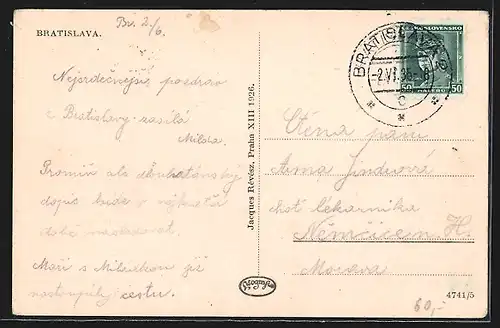 BRATISLAVA.
Br. 2/6.
Nejsrdečnější pozdrav
z Bratislavy zasílá
Milda.
Promiň ale
dopis bude v nejkratší
době následovat.
Moři s Miluškou již
nastoupily cestu.
Jacques Révész, Praha XIII 1926.
BRATISLAVA
-2.VI.36.-
C
ČESKOSLOVENSKO
50 HALÉŘŮ 50
Ctěná paní
Anna Jindrová
choť lékarnika
Němčice n. H.
Morava
4741/5
60,-